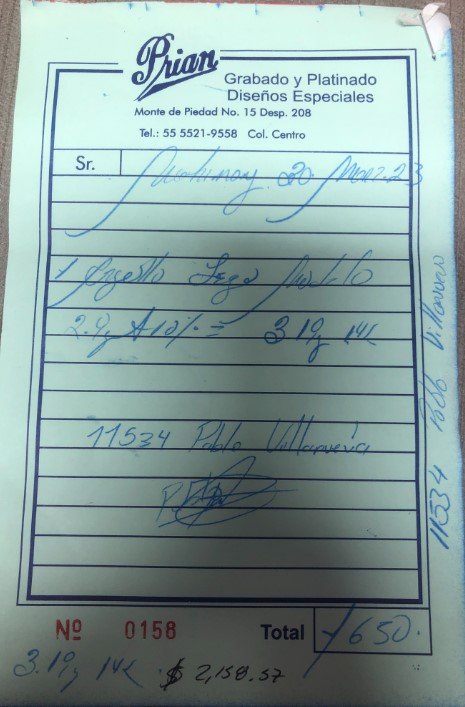 Prian
Grabado y Platinado
Diseños Especiales
Monte de Piedad No. 15 Desp. 208
Tel.: 55 5521-9558 Col. Centro
Sr.
20 Marz. 23
1 Lego Modelo
2.9g + 10% = 3.19g 14K
11534 Pablo Villanueva
11534 Villanueva
Nº 0158
Total 650.
3.19g 14K $ 2,158.57